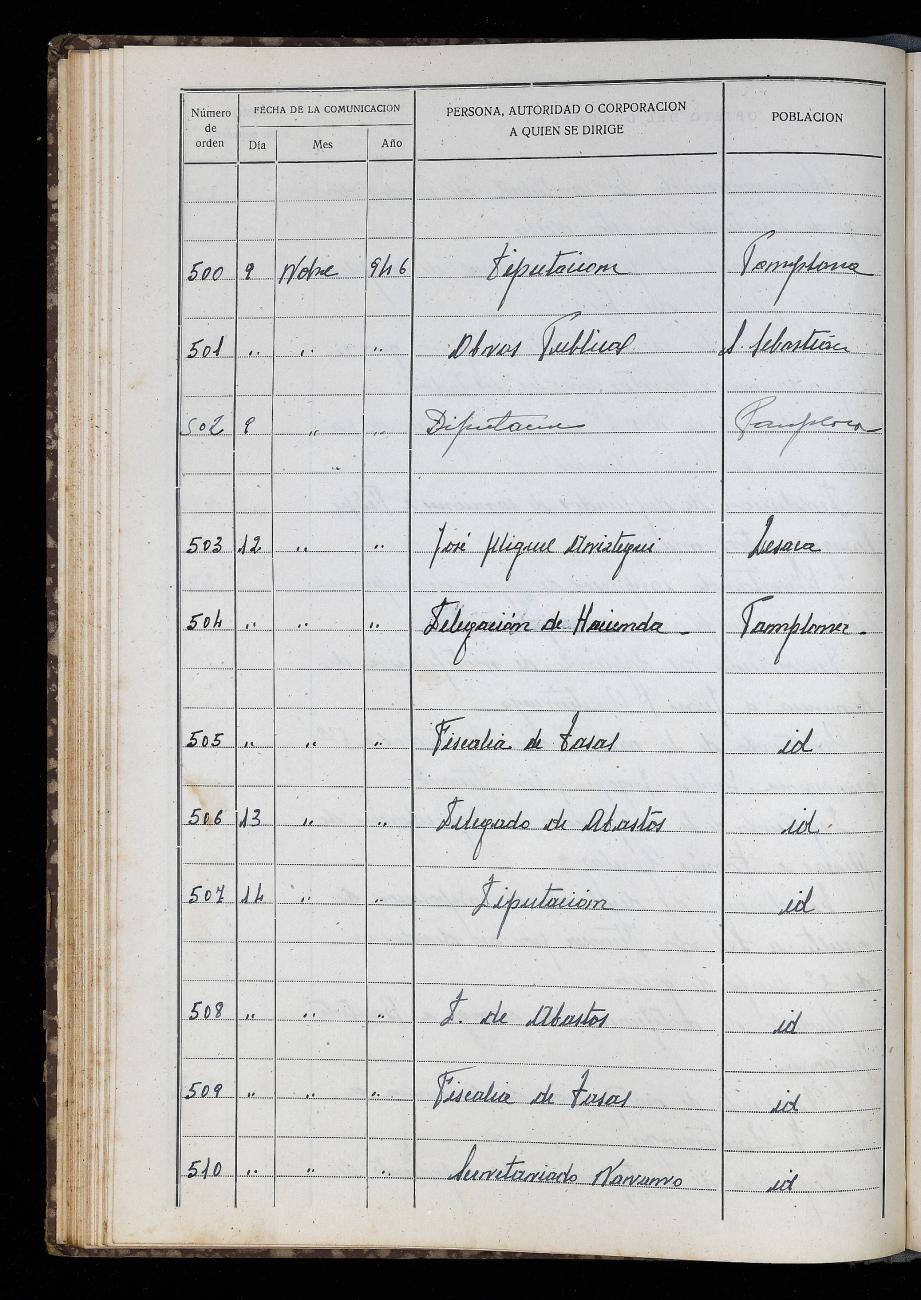 Número de orden FECHA DE LA COMUNICACION PERSONA, AUTORIDAD O CORPORACION A QUIEN SE DIRIGE POBLACION
Día Mes Año
500 9 Nobre 946 Diputacion Pamplona
501 .. .. .. Obras Publicas S. Sebastián
502 9 .. .. Diputacion Pamplona
503 12 .. .. José Miguel Aristegui Lesaca
504 .. .. .. Delegación de Hacienda - Pamplona -
505 .. .. .. Fiscalia de Tasas id
506 13 .. .. Delegado de Abastos id.
507 14 .. .. Diputación id
508 .. .. .. D. de Abastos id
509 .. .. .. Fiscalia de Tasas id
510 .. .. .. Secretariado Navarro id